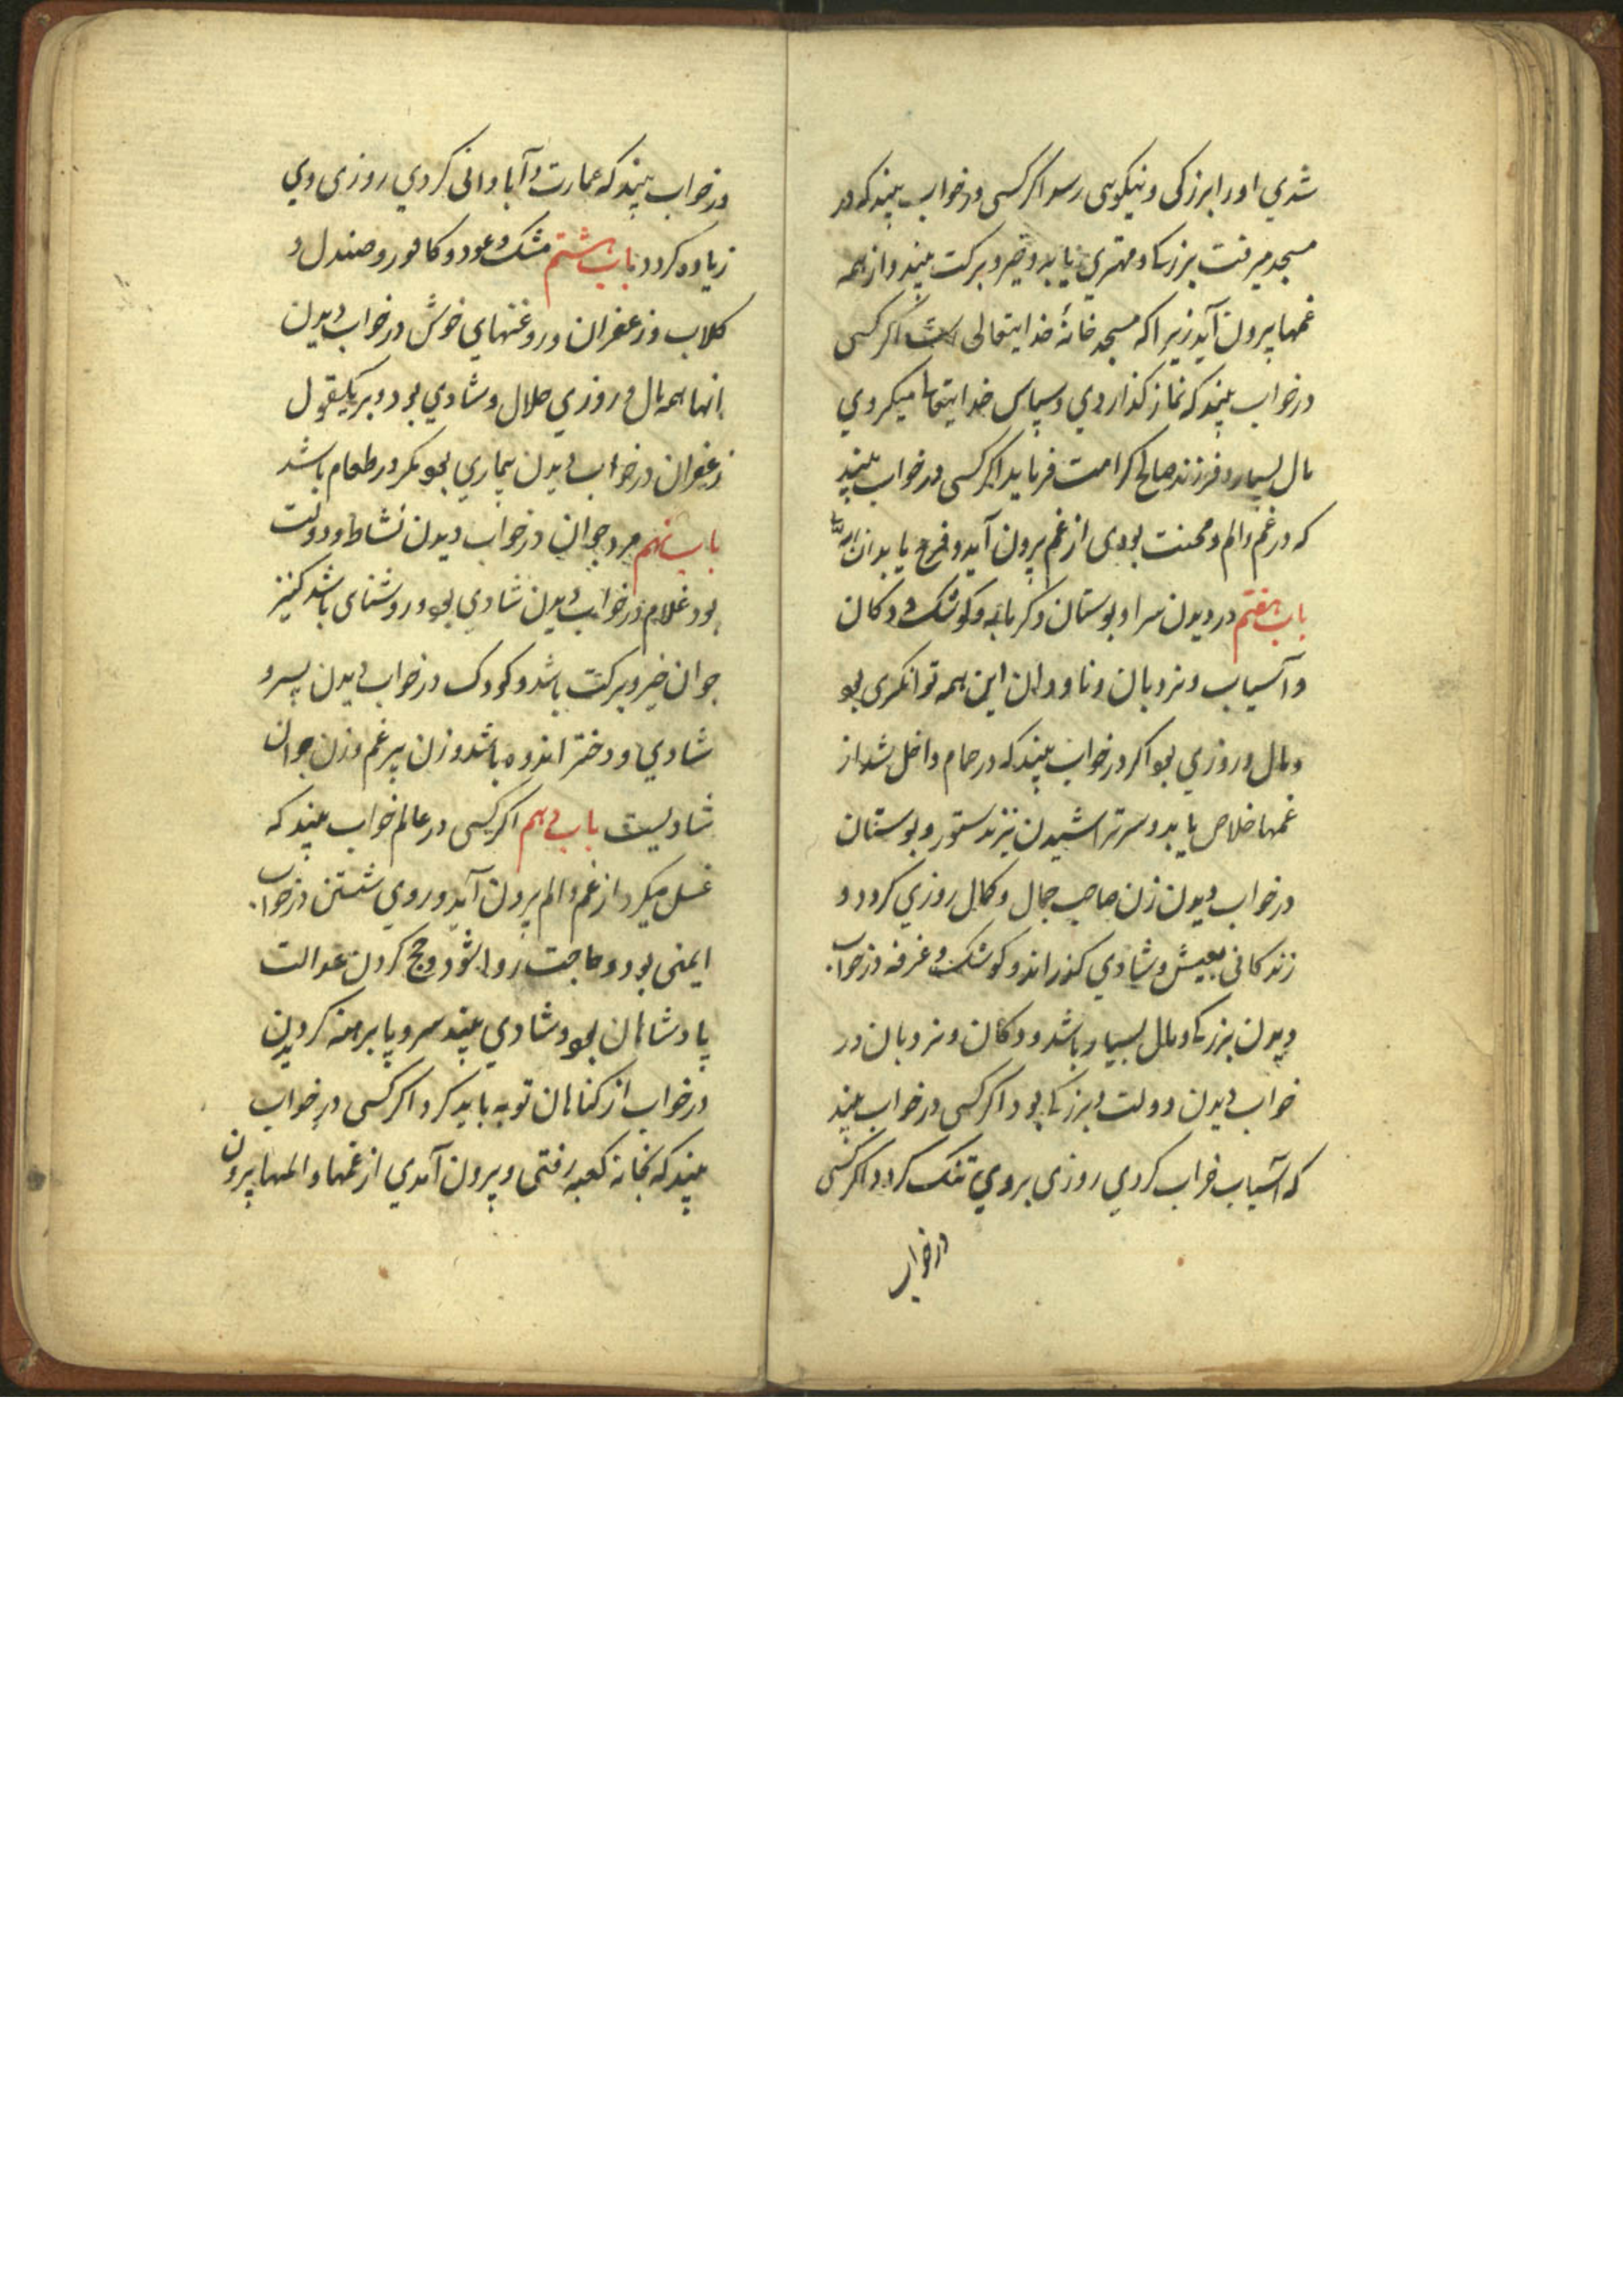 شدي اورا بزرکی و نیکویی رسد اکر کسی در خواب بیند که در
مسجد میرفت بزرکي و مهتري یابد و خیر و برکت بیند و از همه
غمها بیرون آید زیرا که مسجد خانهٔ خدایتعالی است اکر کسی
در خواب بیند که نماز کذاردي و سپاس خدایتعالی میکردي
مال بسیار و فرزند صالح کرامت فرماید اکر کسی در خواب بیند
که در غم و الم و محنت بودی از غم بیرون آید و فرج یابد ان شاء الله
باب هفتم در دیدن سرا و بوستان و کرمابه و کوشک و دکان
و آسیاب و نردبان و ناودان این همه توانکری بود
و مال و روزي بود اکر در خواب بیند که در حمام داخل شد از
غمها خلاص یابد و سر تراشیدن نیز بدستور و بوستان
در خواب دیدن زن صاحب جمال و کمال روزي کردد و
زندکانی بعیش و شادي کذراند و کوشک و غرفه در خواب
دیدن بزرکي و مال بسیار باشد و دکان و نردبان در
خواب دیدن دولت و بزرکي بود اکر کسی در خواب بیند
که آسیاب خراب کردي روزی بروي تنک کردد اکر کسی
در خواب
در خواب بیند که عمارت و آبادانی کردي روزی وي
زیاده کردد باب هشتم مشک و عود و کافور و صندل و
کلاب و زعفران و روغنهاي خوش در خواب دیدن
اینها همه مال و روزي حلال و شادي بود و بر یکقول
زعفران در خواب دیدن بیماري بود مکر در طعام باشد
باب نهم مرد جوان در خواب دیدن نشاط و دولت
بود غلام در خواب دیدن شادي بود و روشنای باشد کنیز
جوان خیر و برکت باشد و کودک در خواب دیدن پسر و
شادي و دختر اندوه باشد و زن پیر غم و زن جوان
شادیست باب دهم اکر کسی در عالم خواب بیند که
غسل میکرد از غم و الم بیرون آید و روي شستن در خواب
ایمنی بود و حاجت روا شود و حج کردن عدالت
پادشاهان بود و شادي بیند سر و پا برهنه کردیدن
در خواب از کناهان توبه باید کرد اکر کسی در خواب
بیند که بخانه کعبه رفتی و بیرون آمدي از غمها و المها بیرون